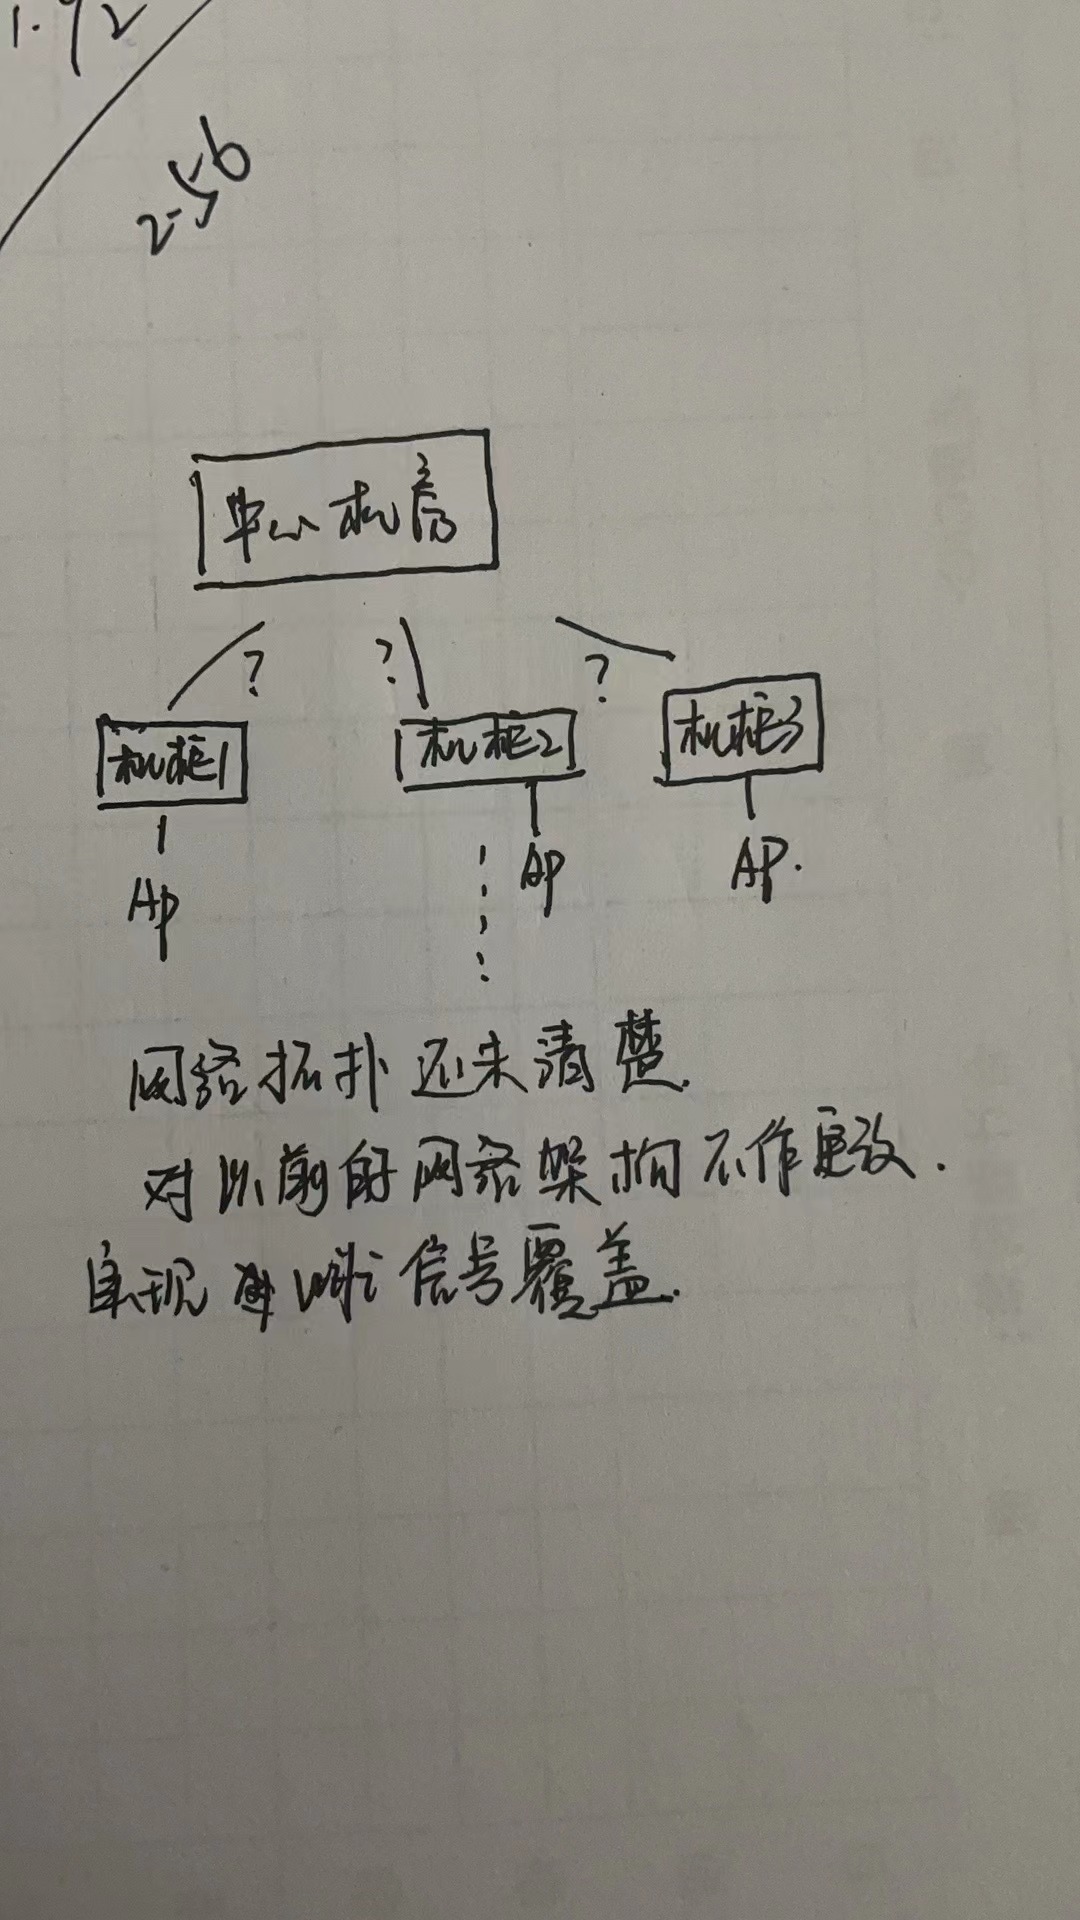 1.92
256
中心机房
? ? ?
机柜1 机柜2 机柜3
Ap AP AP.
网络拓扑还未清楚.
对以前的网络架构不作更改.
实现 wifi 信号覆盖.